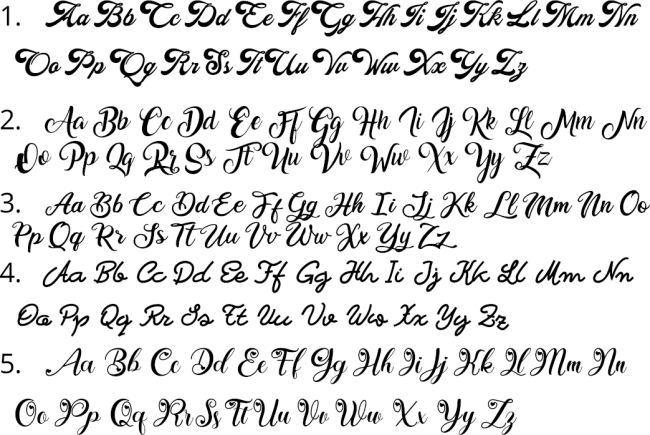 1. Aa Bb Cc Dd Ee Ff Gg Hh Ii Jj Kk Ll Mm Nn
Oo Pp Qq Rr Ss Tt Uu Vv Ww Xx Yy Zz
2. Aa Bb Cc Dd Ee Ff Gg Hh Ii Jj Kk Ll Mm Nn
Oo Pp Qq Rr Ss Tt Uu Vv Ww Xx Yy Zz
3. Aa Bb Cc Dd Ee Ff Gg Hh Ii Jj Kk Ll Mm Nn Oo
Pp Qq Rr Ss Tt Uu Vv Ww Xx Yy Zz
4. Aa Bb Cc Dd Ee Ff Gg Hh Ii Jj Kk Ll Mm Nn
Oo Pp Qq Rr Ss Tt Uu Vv Ww Xx Yy Zz
5. Aa Bb Cc Dd Ee Ff Gg Hh Ii Jj Kk Ll Mm Nn
Oo Pp Qq Rr Ss Tt Uu Vv Ww Xx Yy Zz